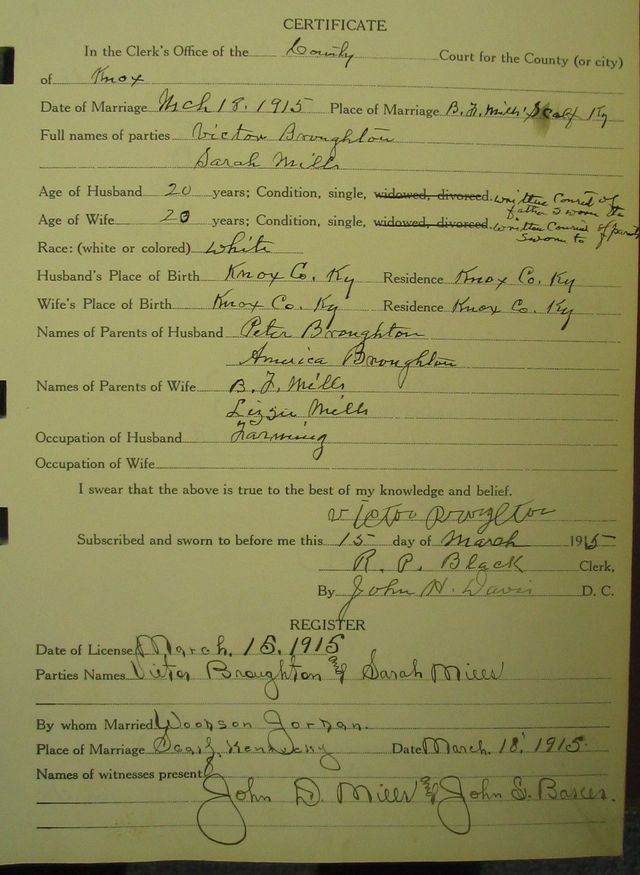 CERTIFICATE
In the Clerk's Office of the County Court for the County (or city)
of Knox
Date of Marriage Mch 18. 1915 Place of Marriage B. F. Mills' Scalf Ky
Full names of parties Victor Broughton
Sarah Mills
Age of Husband 20 years; Condition, single, widowed, divorced. written Consent of father sworn to
Age of Wife 20 years; Condition, single, widowed, divorced. written Consent of parents sworn to
Race: (white or colored) white
Husband's Place of Birth Knox Co. Ky Residence Knox Co. Ky
Wife's Place of Birth Knox Co. Ky Residence Knox Co. Ky
Names of Parents of Husband Peter Broughton
America Broughton
Names of Parents of Wife B. F. Mills
Lizzie Mills
Occupation of Husband Farming
Occupation of Wife
I swear that the above is true to the best of my knowledge and belief.
Victor Broughton
Subscribed and sworn to before me this 15 day of March 1915
R. P. Black Clerk,
By John H. Davis D. C.
REGISTER
Date of License March. 15. 1915
Parties Names Victor Broughton and Sarah Mills
By whom Married Woodson Jordan.
Place of Marriage Scalf, Kentucky Date March. 18, 1915.
Names of witnesses present
John D. Mills and John S.